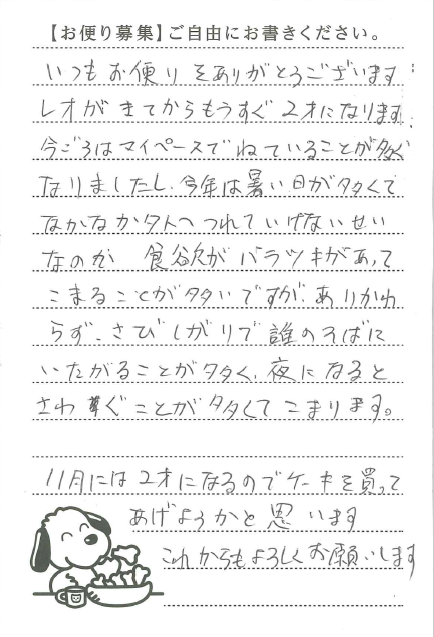 【お便り募集】ご自由にお書きください。
いつもお便りをありがとうございます
レオがきてからもうすぐ2才になります。
今ごろはマイペースでねていることが多く
なりましたし、今年は暑い日が多くて
なかなか外へつれていけないせい
なのか 食欲がバラツキがあって
こまることが多いですが、ありかわ
らず、さびしがりで誰のそばに
いたがることが多く、夜になると
さわぐことが多くてこまります。
11月には2才になるのでケーキを買って
あげようかと思います
これからもよろしくお願いします